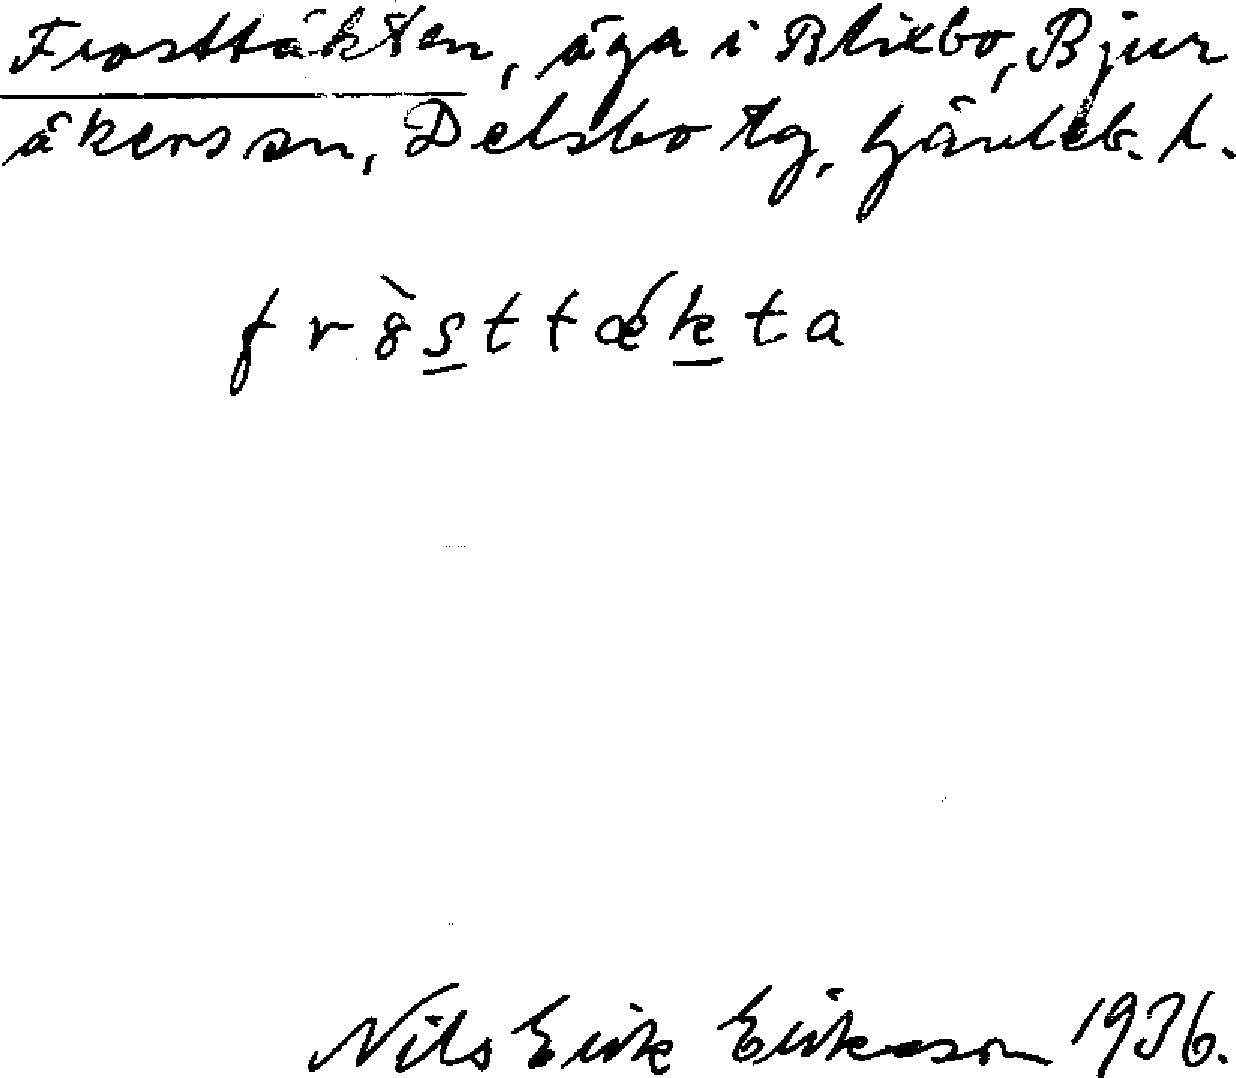 Frosttäkten, äga i Blixbo, Bjur
åkers sn, Delsbo tg, Gävleb. l.
fr8̀sttǽkta
Nils Erik Erikson 1936.